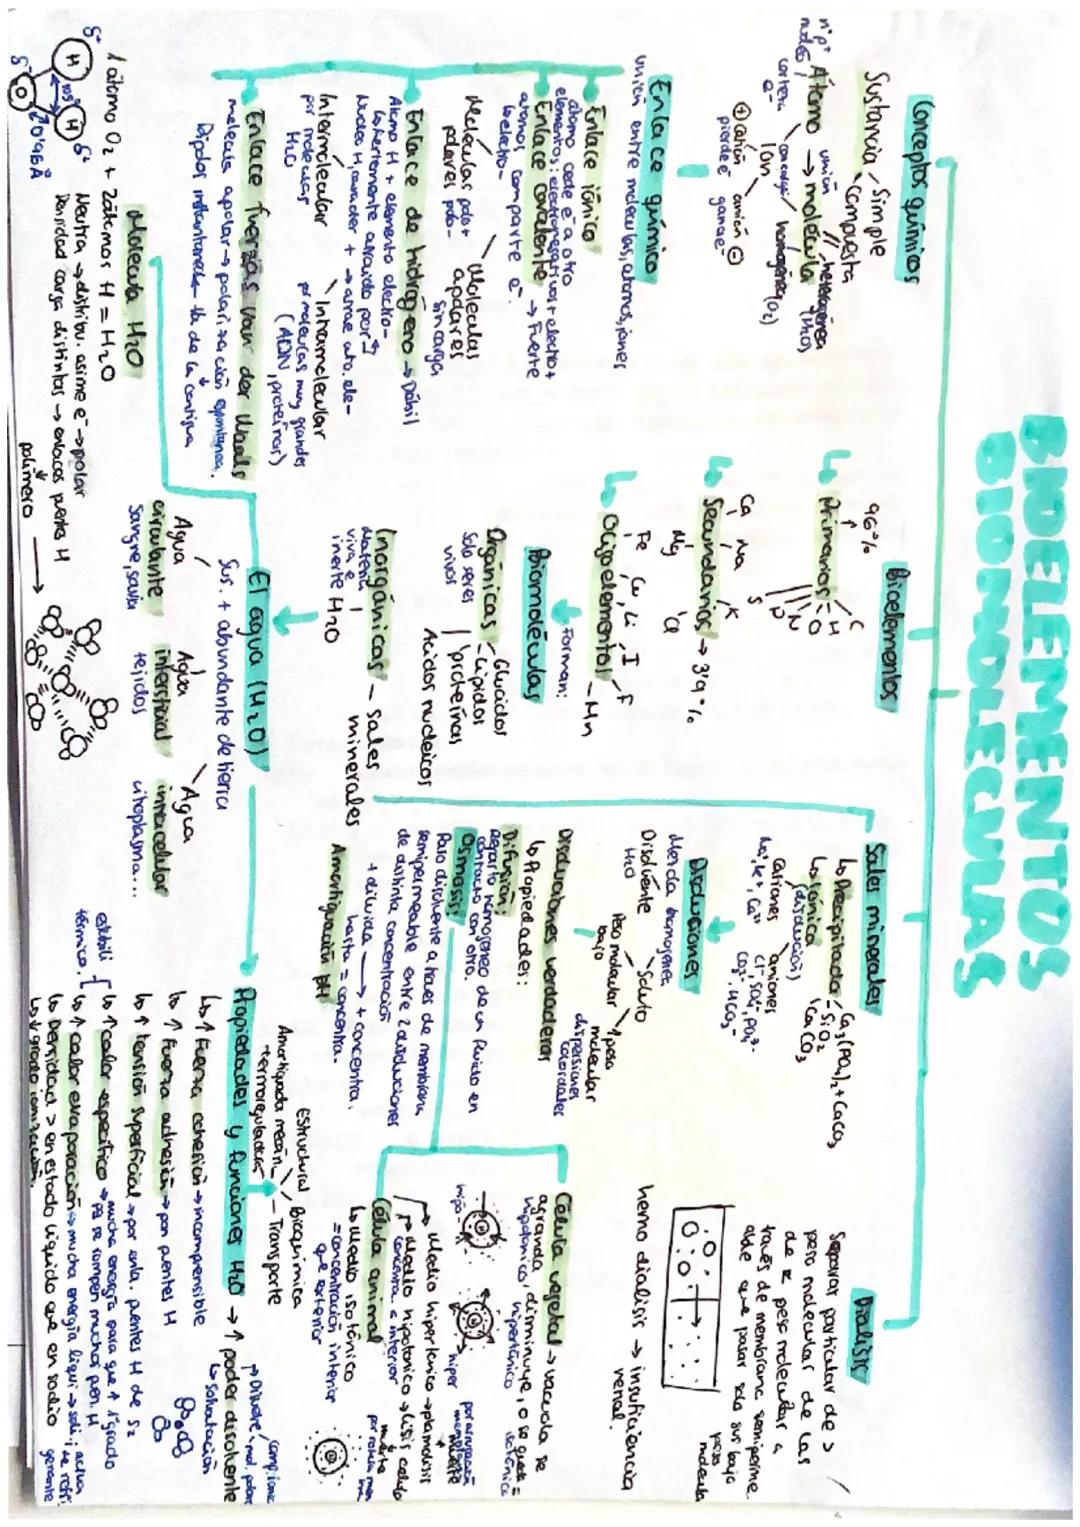 BIOELEMENTOS
BIOMOLECULAS
Conceptos químicos
Sustancia / Simple
Compuesta
Átomo → molécula
unión // heterogénea
homogénea (O2)
corteza
e-
Ion
⊕ catión
pierde e-
anión ⊖
gana e-
Enlace químico
unión entre moleculas, atomos, iones
Enlace iónico
átomo cede e- a otro
Enlace covalente → Fuerte
atomos comparte e-
Moléculas polares
polo +
polo -
Moléculas apolares
sin carga
Enlace de hidrógeno → Débil
Atomo H + elemento electro-
Intermolecular
por moleculas
H2O
Intramolecular
por moleculas muy grandes
(ADN, proteínas)
Enlace fuerzas van der Waals
molecula apolar → polarización espontanea.
Molécula H2O
1 átomo O2 + 2 átomos H = H2O
Neutra → distribu. asime e- → polar
Densidad carga distintas → enlaces puente H
polímero
H
H
O
δ+
Bioelementos
96%
Primarios
C
H
O
N
P
S
Secundarios → 3'9%
Ca
Na
K
Mg
Cl
Oligoelementos
Fe, Cu, Li, I
F
Mn
Forman:
Biomoléculas
Orgánicas
Solo seres
vivos
Glucidos
Lipidos
proteínas
Acidos nucleicos
Inorgánicas
Materia
viva e
inerte
H2O
sales
minerales
El agua (H2O)
Sus. + abundante de tierra
Agua
circulante
Sangre, savia
Agua
intersticial
tejidos
Agua
intracelular
citoplasma...
Sales minerales
Precipitadas
Ca3(PO4)2 + CaCO3
SiO2
CaCO3
Iónica
(disolución)
Cationes
Na+, K+, Ca2+
aniones
Disoluciones
Mezcla homogenea
Disolvente
H2O
Soluto
Peso molecular
bajo
↑ peso
molecular
dispersiones
coloidales
Disoluciones verdaderas
Propiedades:
Difusión:
Reparto homogeneo de un fluido en
contacto con otro.
Osmosis:
Paso disolvente a traves de membrana
semipermeable entre 2 disoluciones
de distinta concentración
+ diluida → + concentra.
hasta = concentra.
Amortiguación pH
Dialisis
Separar particulas de >
peso molecular de las
de < peso molecular a
través de membrana semiperme
able que pasar solo sus bajo
peso
molecula
hemodialisis → insuficiencia
renal.
Célula vegetal → vacuola se
agranda, disminuye, o se queda =
hipotonico
hipertónico
isotónica
hipo
hiper
Medio hipertonico → plamolisis
Medio hipotonico → lisis celula
concentra < interior
muerte
Célula animal
Medio isotónico
= concentración interior
que exterior
Propiedades y funciones H2O
Estructural
Bioquímica
Transporte
Amortiguada mecán.
termoreguladoras
↑ poder disolvente
Solvatación
↑ Fuerza cohesión → incomprensible
↑ Fuerza adhesión → por puentes H
↑ tensión superficial → por enla. puentes H de sı
↑ calor específico → mucha energía para que + 1º grado
↑ calor evaporación → mucha energía
estabili
térmico.
Densidad > en estado líquido que en solido
↓ grado ionización.